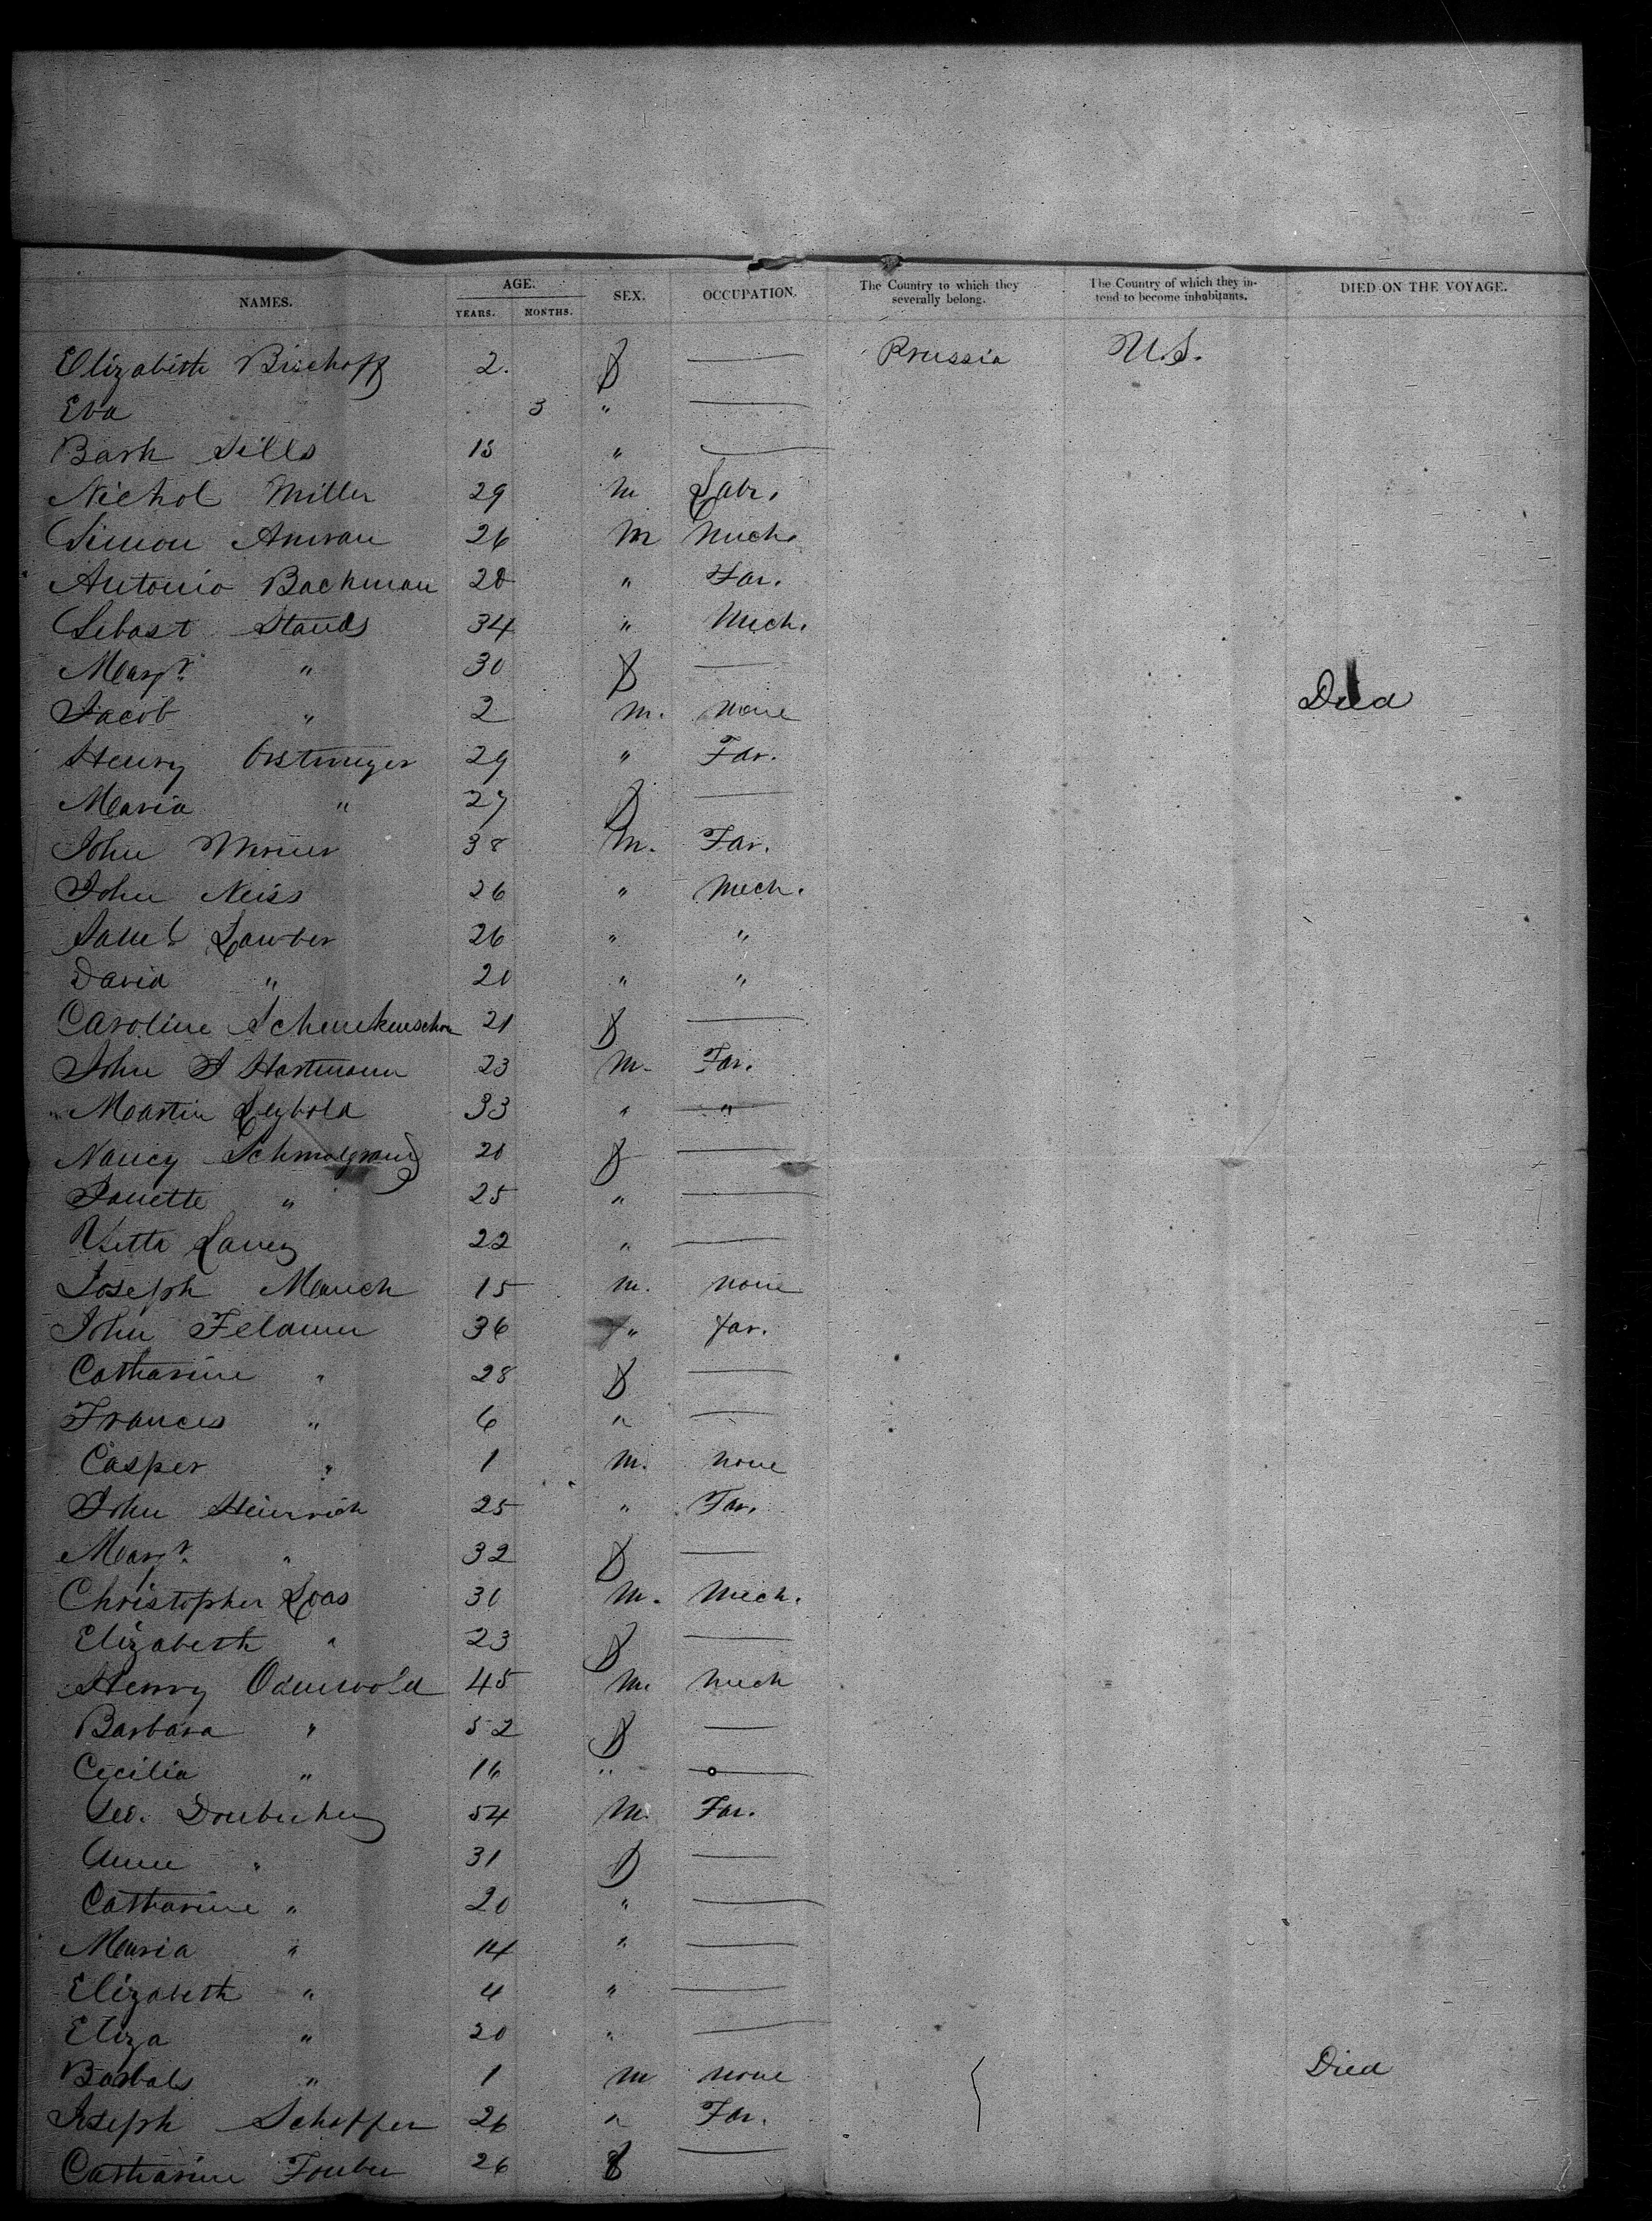 NAMES. AGE. YEARS. MONTHS. SEX. OCCUPATION. The Country to which they severally belong. The Country of which they intend to become inhabitants. DIED ON THE VOYAGE.
Elizabeth Bischoff 2. f — Prussia U.S.
Eva 3 " —
Barh Sills 18 " —
Nichol Miller 29 m Labr.
Simon Amran 26 m Mech.
Antonio Bachman 28 " Far.
Sebast Stauds 34 " Mech.
Margr. " 30 f —
Jacob " 2 m. none Died
Henry 29 " Far.
Maria " 27 f —
John 38 m. Far.
John Neiss 26 " Mech.
Saml. Lawber 26 " "
David " 20 " "
Caroline 21 f —
John J Hartmann 23 m. Far.
Martin Leybold 33 " "
Nancy 20 f —
Janette " 25 " —
22 " —
Joseph Mauch 15 m. none
John 36 " Far.
Catharine " 28 f —
Frances " 6 " —
Casper " 1 m. none
John Heinrich 25 " Far.
Margr. " 32 f —
Christopher Loas 30 m. Mech.
Elizabeth " 23 f —
Henry Odenwold 45 m. Mech
Barbara " 52 f —
Cecilia " 16 " —
Geo. 54 M. Far.
Anne " 31 f —
Catharine " 20 " —
Maria " 14 " —
Elizabeth " 4 " —
Eliza " 20 " —
" 1 m none Died
Joseph Schaffer 26 " Far.
Catharine 26 f —